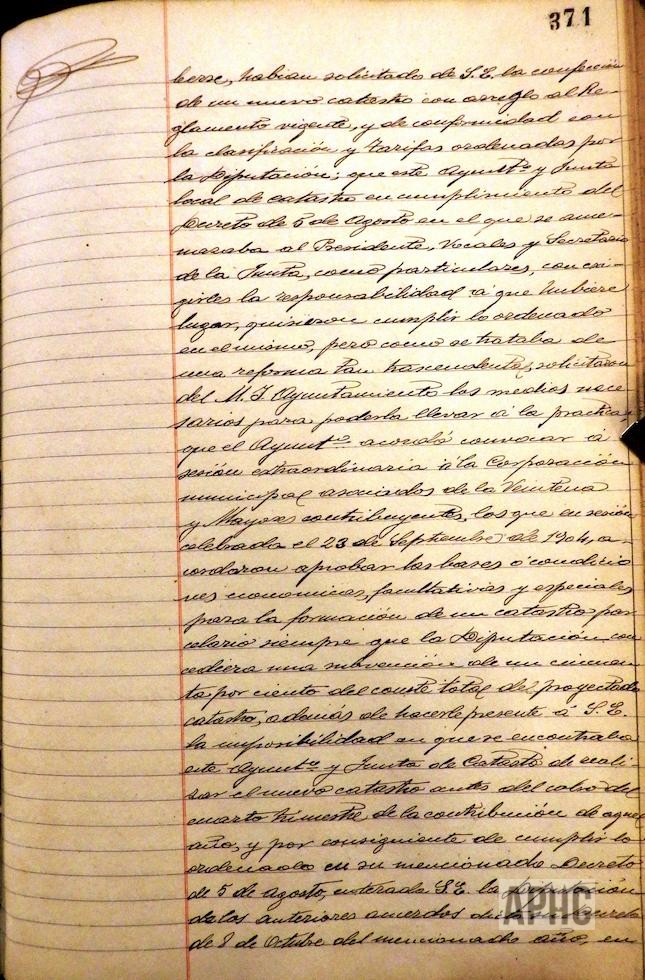 371
berse, habian solicitado de S.E. la confección
de un nuevo catastro con arreglo al Re-
glamento vigente, y de conformidad con
la clasificación y tarifas ordenadas por
la Diputación; que este Ayuntº y Junta
local de catastro en cumplimiento del
Decreto de 5 de Agosto en el que se ame-
nazaba al Presidente, Vocales y Secretario
de la Junta, como particulares, con exi-
girles la responsabilidad á que hubiere
lugar, quisieron cumplir lo ordenado
en el mismo, pero como se trataba de
una reforma tan trascendente, solicitaron
del M. I. Ayuntamiento los medios nece
sarios para poderla llevar á la practica,
que el Ayuntº acordó convocar á
sesión extraordinaria á la Corporación
municipal asociados de la Veintena
y Mayores contribuyentes, los que en sesión
celebrada el 23 de Septiembre de 1904, a-
cordaron aprobar las bases ó condicio
nes economicas, facultativas y especiales
para la formación de un catastro par
celario siempre que la Diputación con
cediera una subvención de un cincuen
ta por ciento del coste total del proyectado
catastro, además de hacerle presente á S.E.
la imposibilidad en que se encontraba
este Ayuntº y Junta de Catastro de reali
zar el nuevo catastro antes del cobro del
cuarto trimestre de la contribución de aquel
año, y por consiguiente de cumplir lo
ordenado en su mencionado Decreto
de 5 de Agosto, enterada S.E. la Diputación
de los anteriores acuerdos
de 8 de Octubre del mencionado año, en
APHC